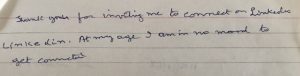 Thank goh for inviting me to connect on Linkedin
Linkedin. At my age I am in no mood to
get connected